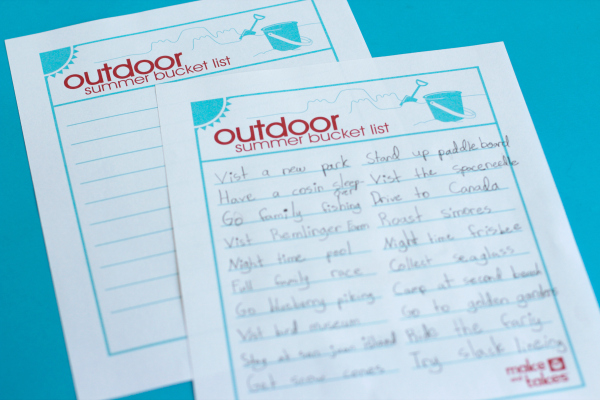 outdoor
summer bucket list
outdoor
summer bucket list
Vist a new park
Have a cosin sleep-
over
Go family fishing
Vist Remlinger farm
Night time pool
Full family race
Go blueberry piking
Vist bird museum
Stay at san juan island
Get snow cones
Stand up paddle board
Vist the spaceneedle
Drive to Canada
Roast smores
Night time frisbee
Collect seaglass
Camp at second beach
Go to golden gardens
Ride the fariy
Try slack lineing
make
and takes